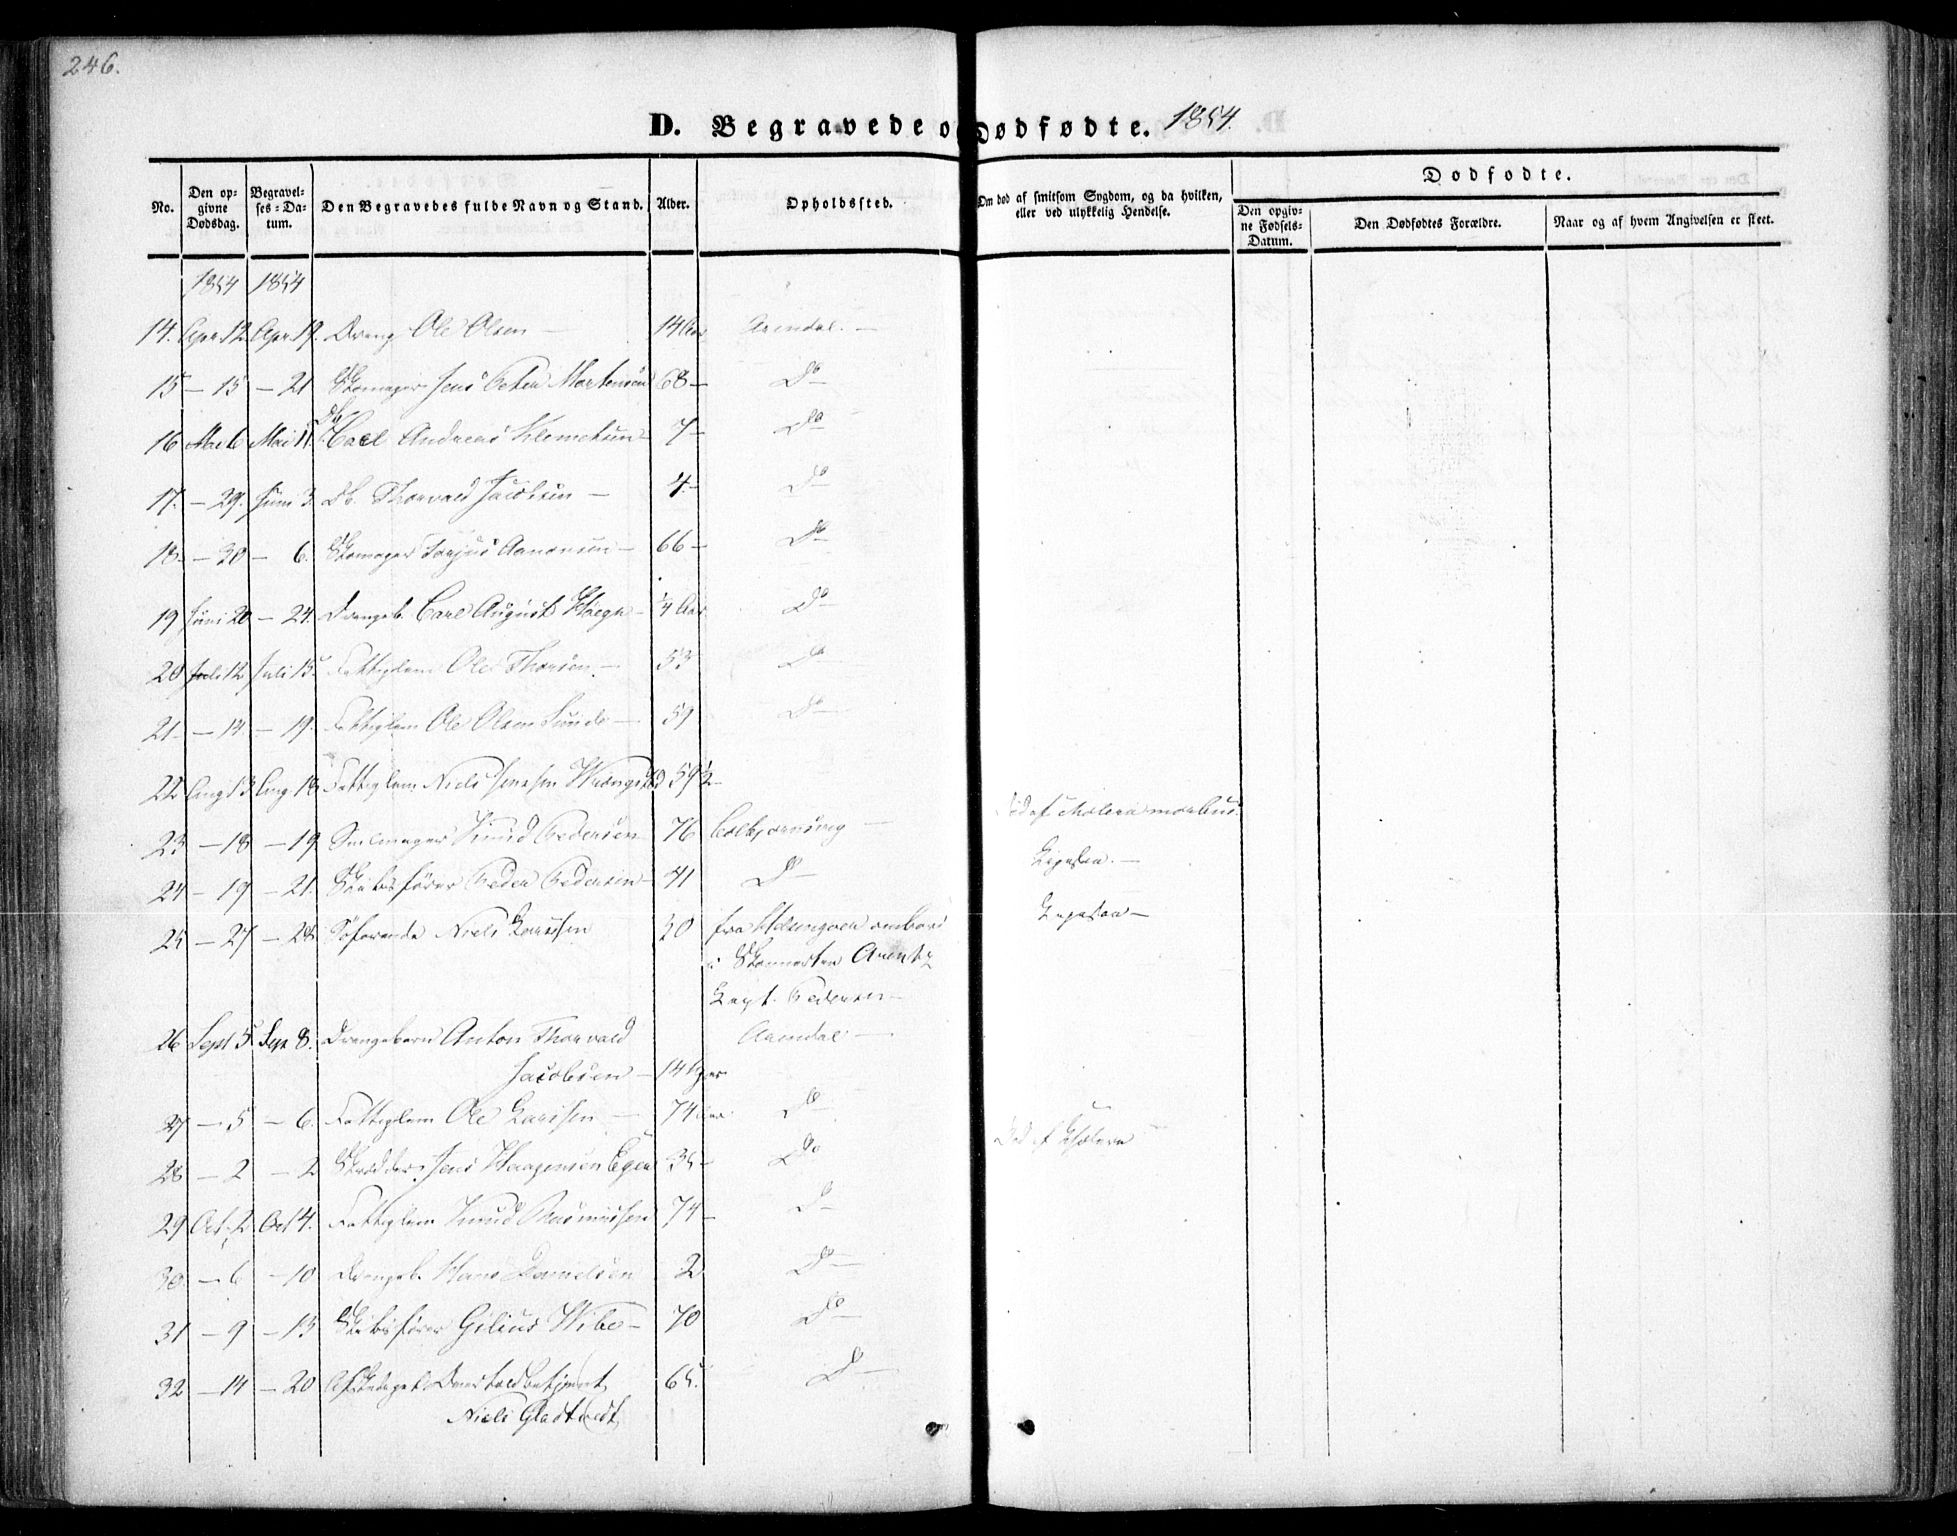 246.
D. Begravede o Dødfødte. 1854.
No. Den opgivne Dødsdag. Begravelses-Datum. Den Begravedes fulde Navn og Stand. Alder. Opholdssted. Om død af smitsom Sygdom, og da hvilken, eller ved ulykkelig Hendelse.
Dødfødte.
Den opgivne Fødsels-Datum. Den Dødfødtes Forældre. Naar og af hvem Angivelsen er skeet.
1854 1854
14. Apr. 12. Apr. 19. Dreng Ole Olsen — 14 Aar Arendal. —
15 — 15 — 21 Skomager Jens Peter Mortensen 68 — Do —
16 Mai 6 Mai 11. Db. Carl Andreas Klemetsen — 7 — Do —
17. — 29. Juni 3. Db. Thorvald Jacobsen — 4. — Do —
18. — 30 — 6. Skomager Torjus Aanonsen — 66 — Do —
19 Juni 20 — 24. Drengeb. Carl August — 1/4 Aar. Do —
20 Juli 12 Juli 15. Fattiglem Ole Thorsen. — 53 Do
21. — 14 — 19. Fattiglem Ole Olsen Sunde — 59 Do —
22 Aug 13 Aug. 18. Fattiglem Niels Jensen 59 1/2 —
23 — 18 — 19 Knud Pedersen 76 Colbjørnsvig — Død af Cholera morbus.
24 — 19 — 21. Skibsfører Peder Pedersen — 41 Do — Ligesaa. —
25 — 27 — 28. Søfarende Niels Larssen 30 fra ombord Ligesaa —
i Skonnerten
Capt. Pedersen —
26 Sept 5 Sept 8. Drengebarn Anton Thorvald Arendal —
Jacobsen — 14
27 — 5 — 6. Fattiglem Ole Larssen — 74 Aar. Do —
28 — 2 — 2 Skrædder Jens Haagensen 35 — Do Død af Cholera
29 Oct. 2. Oct 4. Fattiglem Knud Rasmussen 74 — Do —
30. — 6 — 10 Drengeb. Hans Danielsen 2 Do —
31 — 9 — 13 Skibsfører Gilius Wibe — 70 Do —
32 — 14 — 20 Afskediget 65. Do —
Niels